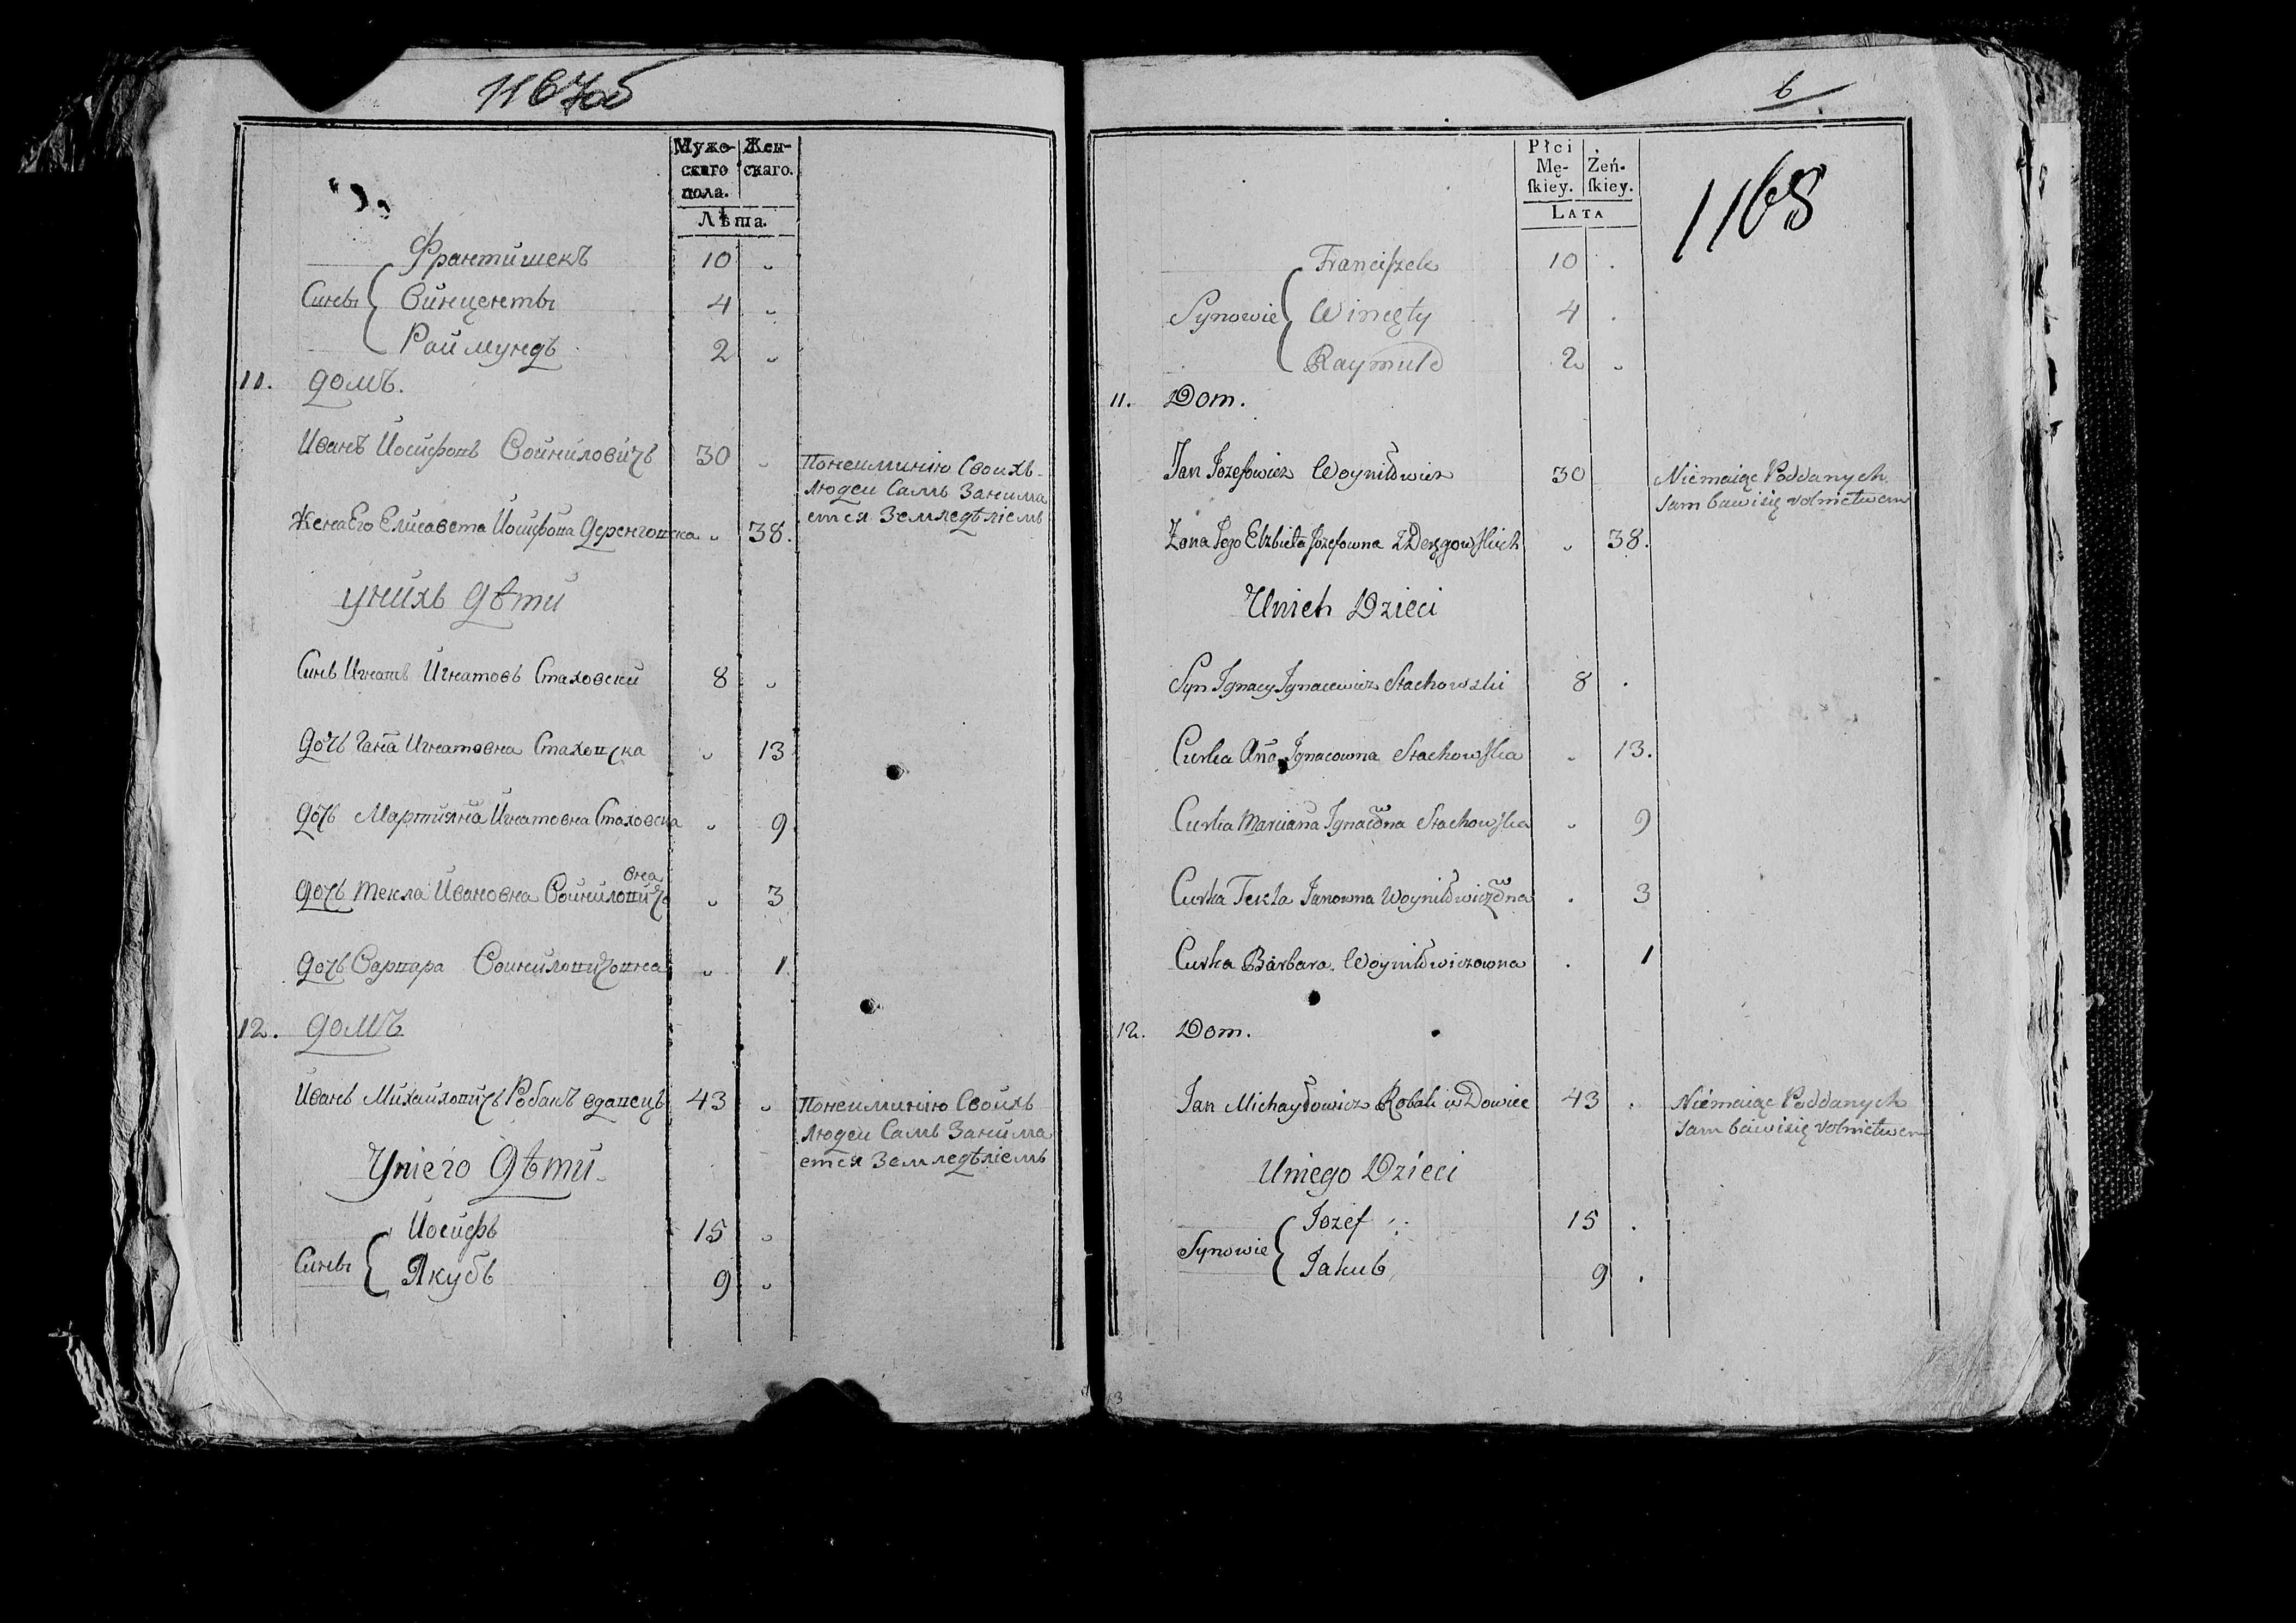 1167об
Мужескаго пола.
Женскаго.
Лѣта.
Франтишекъ 10
Сины Винценты 4
Раймундъ 2
11. Домъ.
Иванъ Иосифовъ Войниловичъ 30
Понеимнию Своихъ
людеи Самъ Занима
ется Земледѣлiемъ
Жена Его Елисавета Иосифовна 38.
Унихъ Дѣти
Синъ Игнатъ Игнатовъ Стаховски 8
Дочъ Ганна Игнатовна Стаховска 13
Дочъ Мартияна Игнатовна Стаховска 9
Дочъ Текла Ивановна Войниловичовна 3
Дочъ Варвара Войниловичовна 1
12. Домъ
Иванъ Михайловичъ Робакъ вдавецъ 43
Понеимнию Своихъ
людеи Самъ Занима
ется Земледѣлiемъ
Унiего Дѣти.
Иосифъ 15
Сины
Якубъ 9
6
1168
Płci Męſkiey.
Żeńſkiey.
LATA
Franciſzek 10
Synowie Wincęty 4
Raymuld 2
11. Dom.
Jan Jozefowicz Woyniłowicz 30
Niemaiąc Poddanych
sam bawi się rolnictwem
Zona Jego Elzbieta Jozefowna 38.
Unich Dzieci
Syn Ignacy Ignacewicz Stachowski 8
Curka Anna Ignacowna Stachowſka 13.
Curka Marcianna Ignacowna Stachowſka 9
Curka Tekla Janowna Woyniłowiczowna 3
Curka Barbara Woyniłowiczowna 1
12. Dom.
Jan Michayłowicz Robak wDowiec 43
Niemaiąc Poddanych
sam bawi się rolnictwem
Uniego Dzieci
Jozef 15
Synowie
Jakub 9